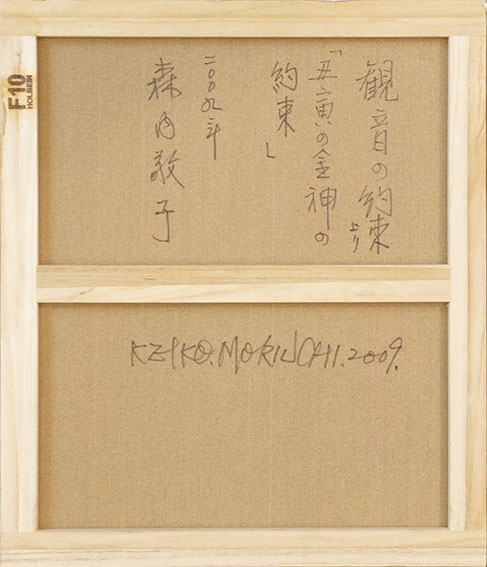 観音の約束より
「丑寅の金神の
約束」
二〇〇九年
森内敬子
KEIKO.MORIUCHI.2009.
F10
HOLBEIN